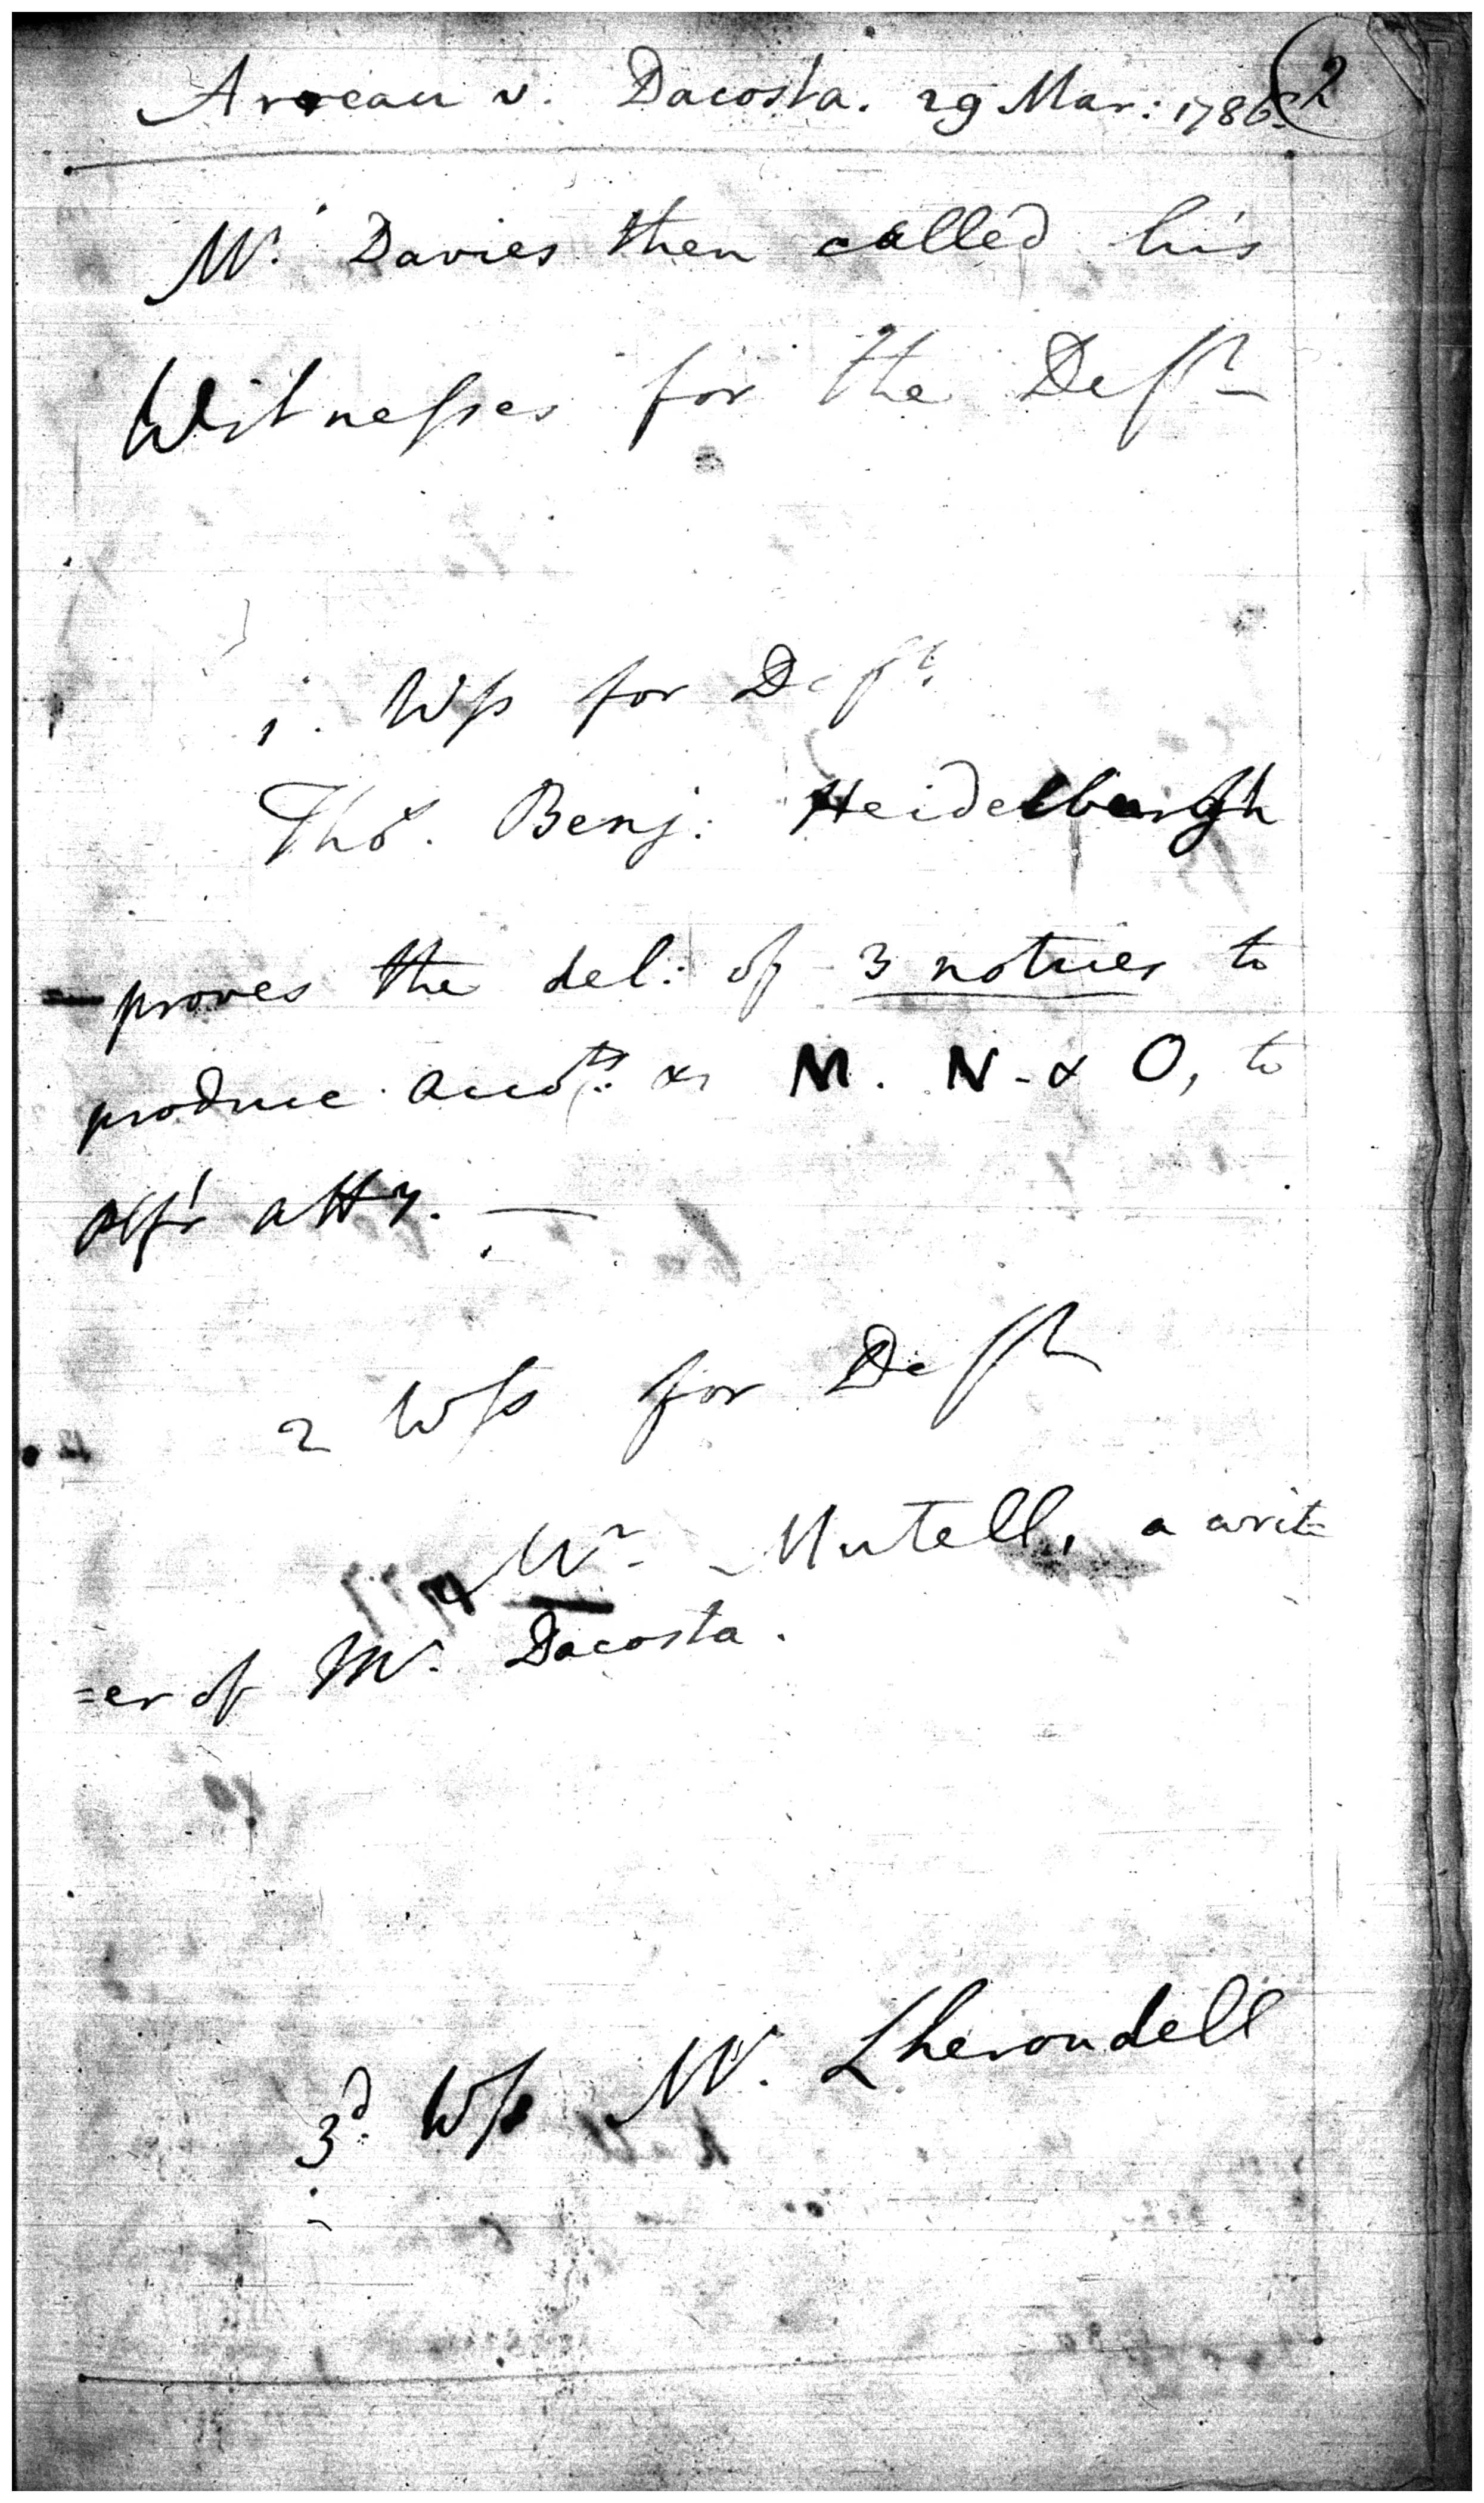 v. Dacosta. 29 Mar: 1786 2
Mr. Davies then called his
Witnesses for the Deft
1. Wss for Deft.
Thos. Benj: Heidelburgh
proves the del: of 3 notices to
produce accots: M. N. & O, to
atty. —
2 Wss for Deft
Mr Mutell, a writ=
=er of Mr. Dacosta.
3d. Wss Mr. Lherondell